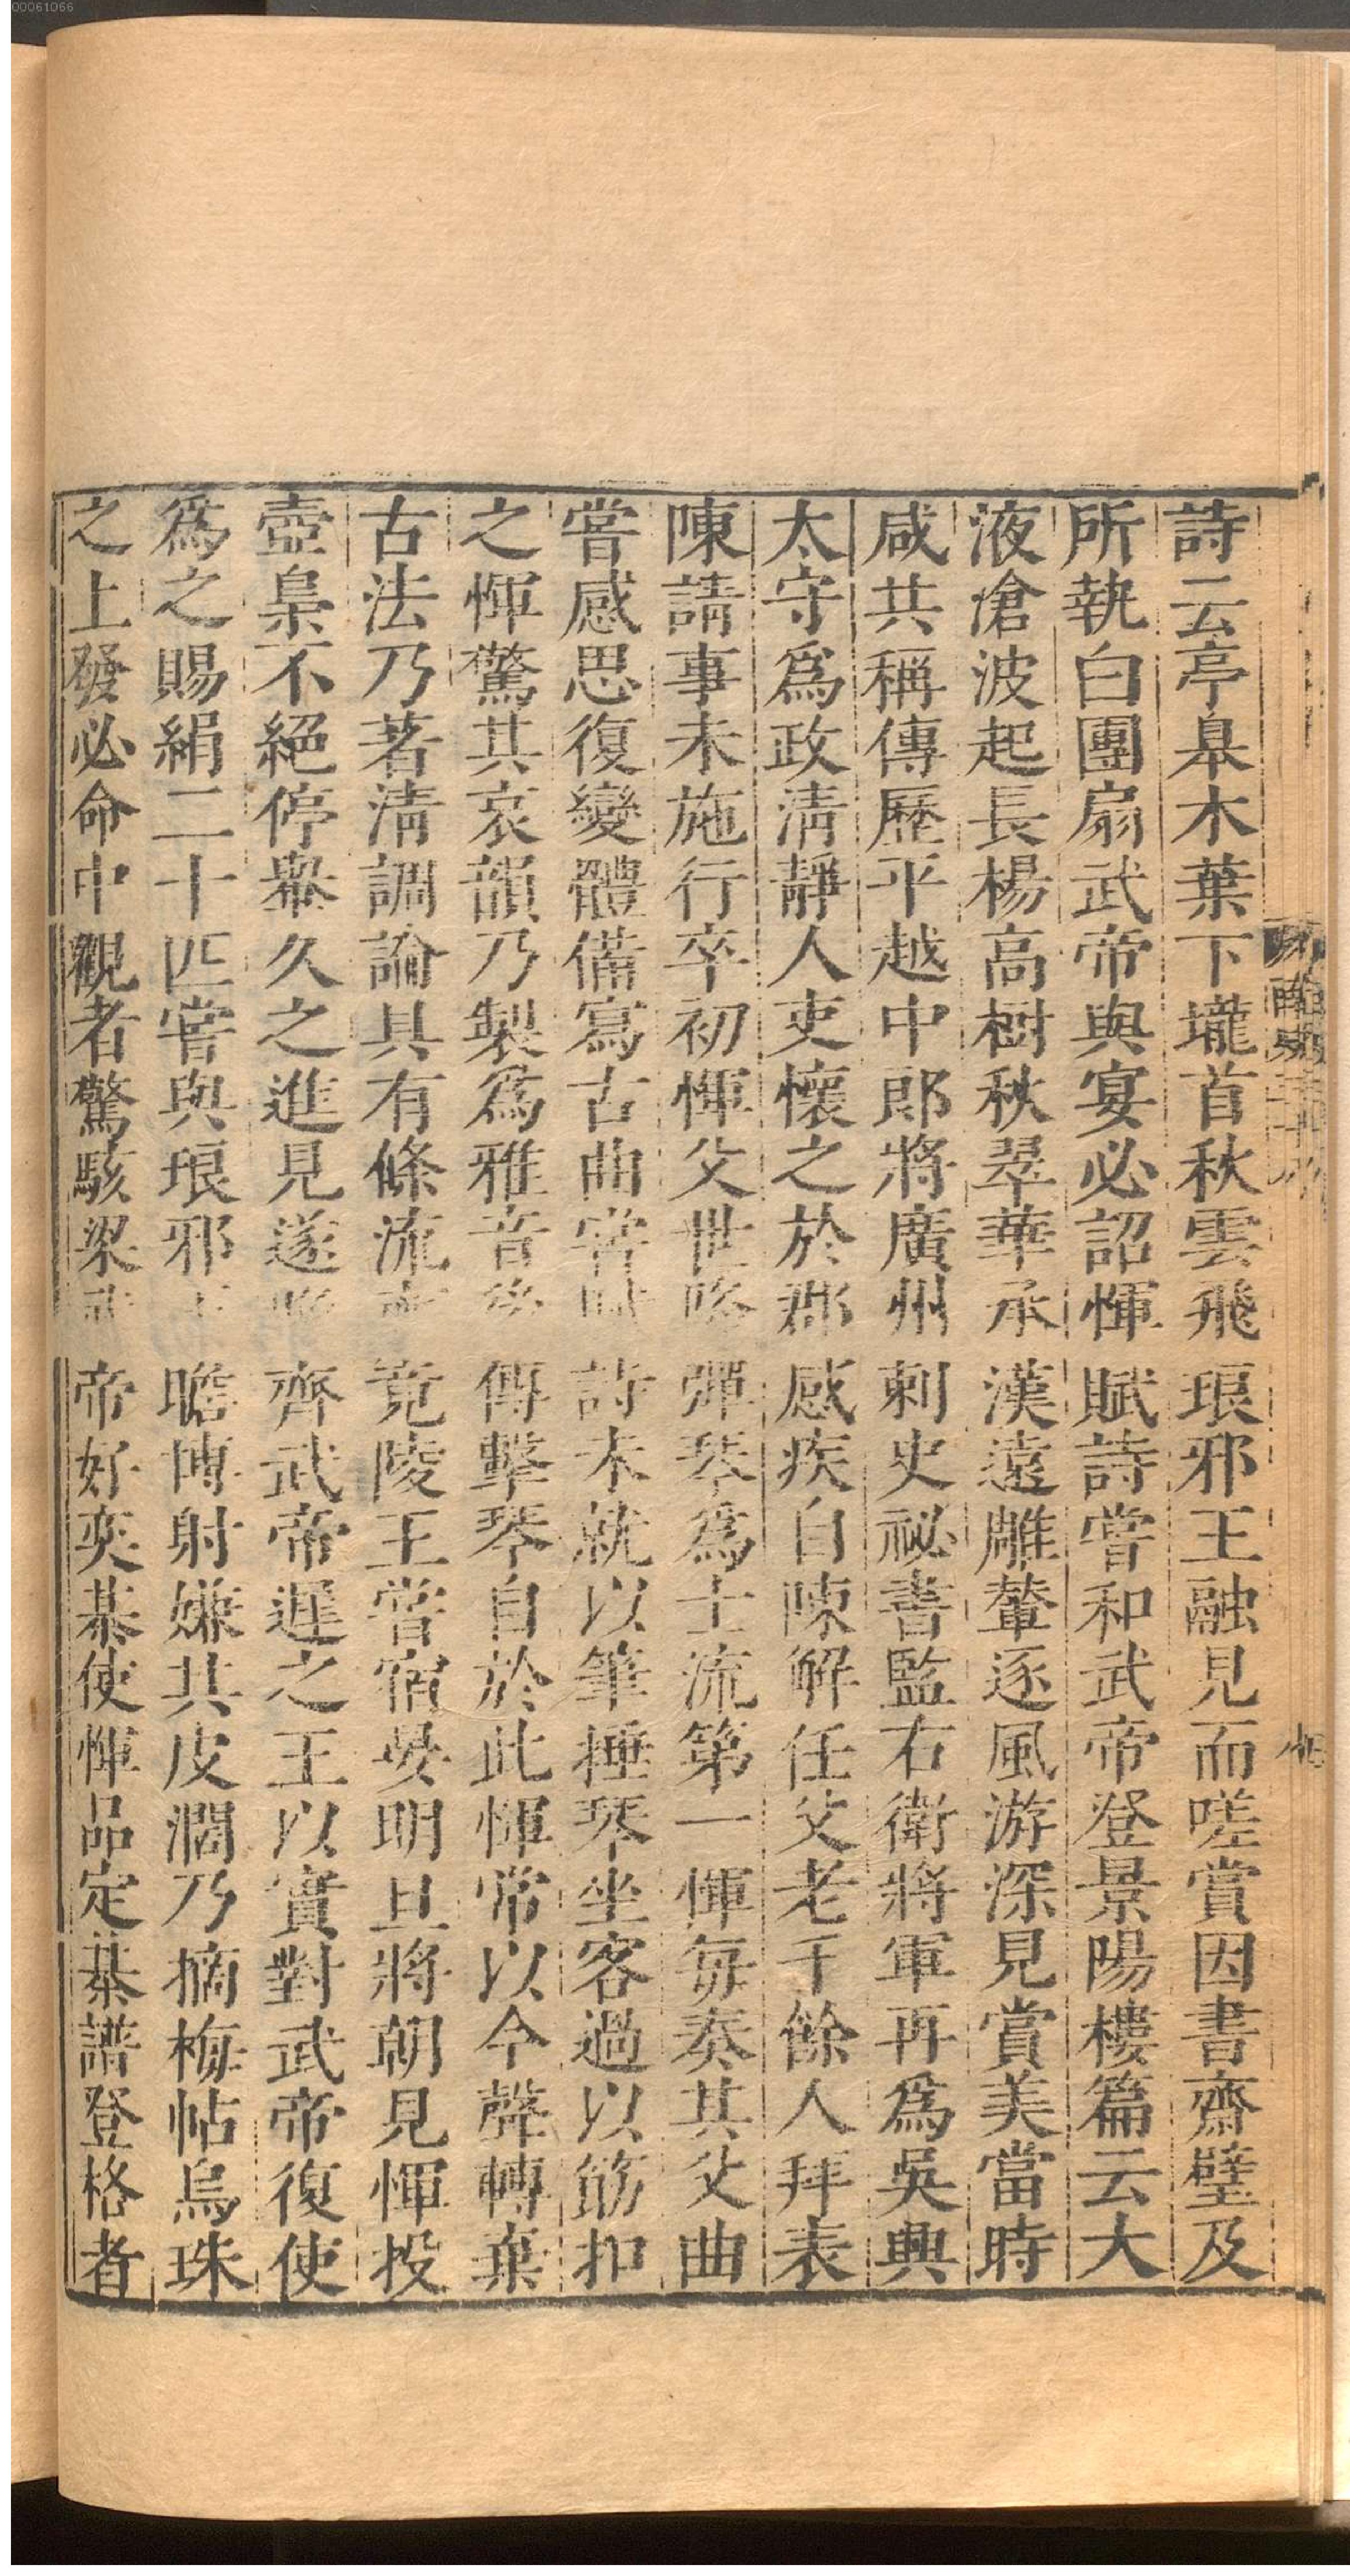 詩云亭臯木葉下壠首秋雲飛琅邪王融見而嗟賞因書齋壁及
所執白團扇武帝與宴必詔惲賦詩嘗和武帝登景陽樓篇云大
液滄波起長楊高樹秋翠華承漢遠雕輦逐風游深見賞美當時
咸共稱傳歷平越中郎將廣州刺史祕書監右衛將軍再爲吳興
太守爲政清靜人吏懷之於郡感疾自陳解任父老千餘人拜表
陳請事未施行卒初惲父世彈琴爲士流第一惲每奏其父曲
嘗感思復變體備寫古曲嘗詩未就以筆捶琴坐客過以筯扣
之惲驚其哀韻乃製爲雅音傳擊琴自於此惲常以今聲轉棄
古法乃著清調論具有條流竟陵王嘗宿晏明旦將朝見惲投
壺梟不絕停轝久之進見遂齊武帝遲之王以實對武帝復使
爲之賜絹二十匹嘗與琅邪瞻博射嫌其皮濶乃摘梅帖烏珠
之上發必命中觀者驚駭梁帝好奕棊使惲品定棊譜登格者
00061066